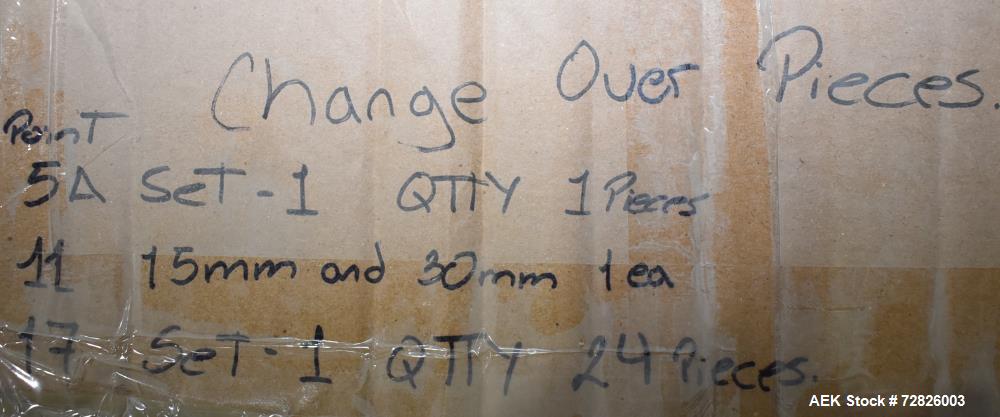 Change Over Pieces.
Point
5A SeT-1 QTTY 1 Pieces
11 15mm and 30mm 1 ea
17 SeT-1 QTTY 24 Pieces.
AEK Stock # 72826003